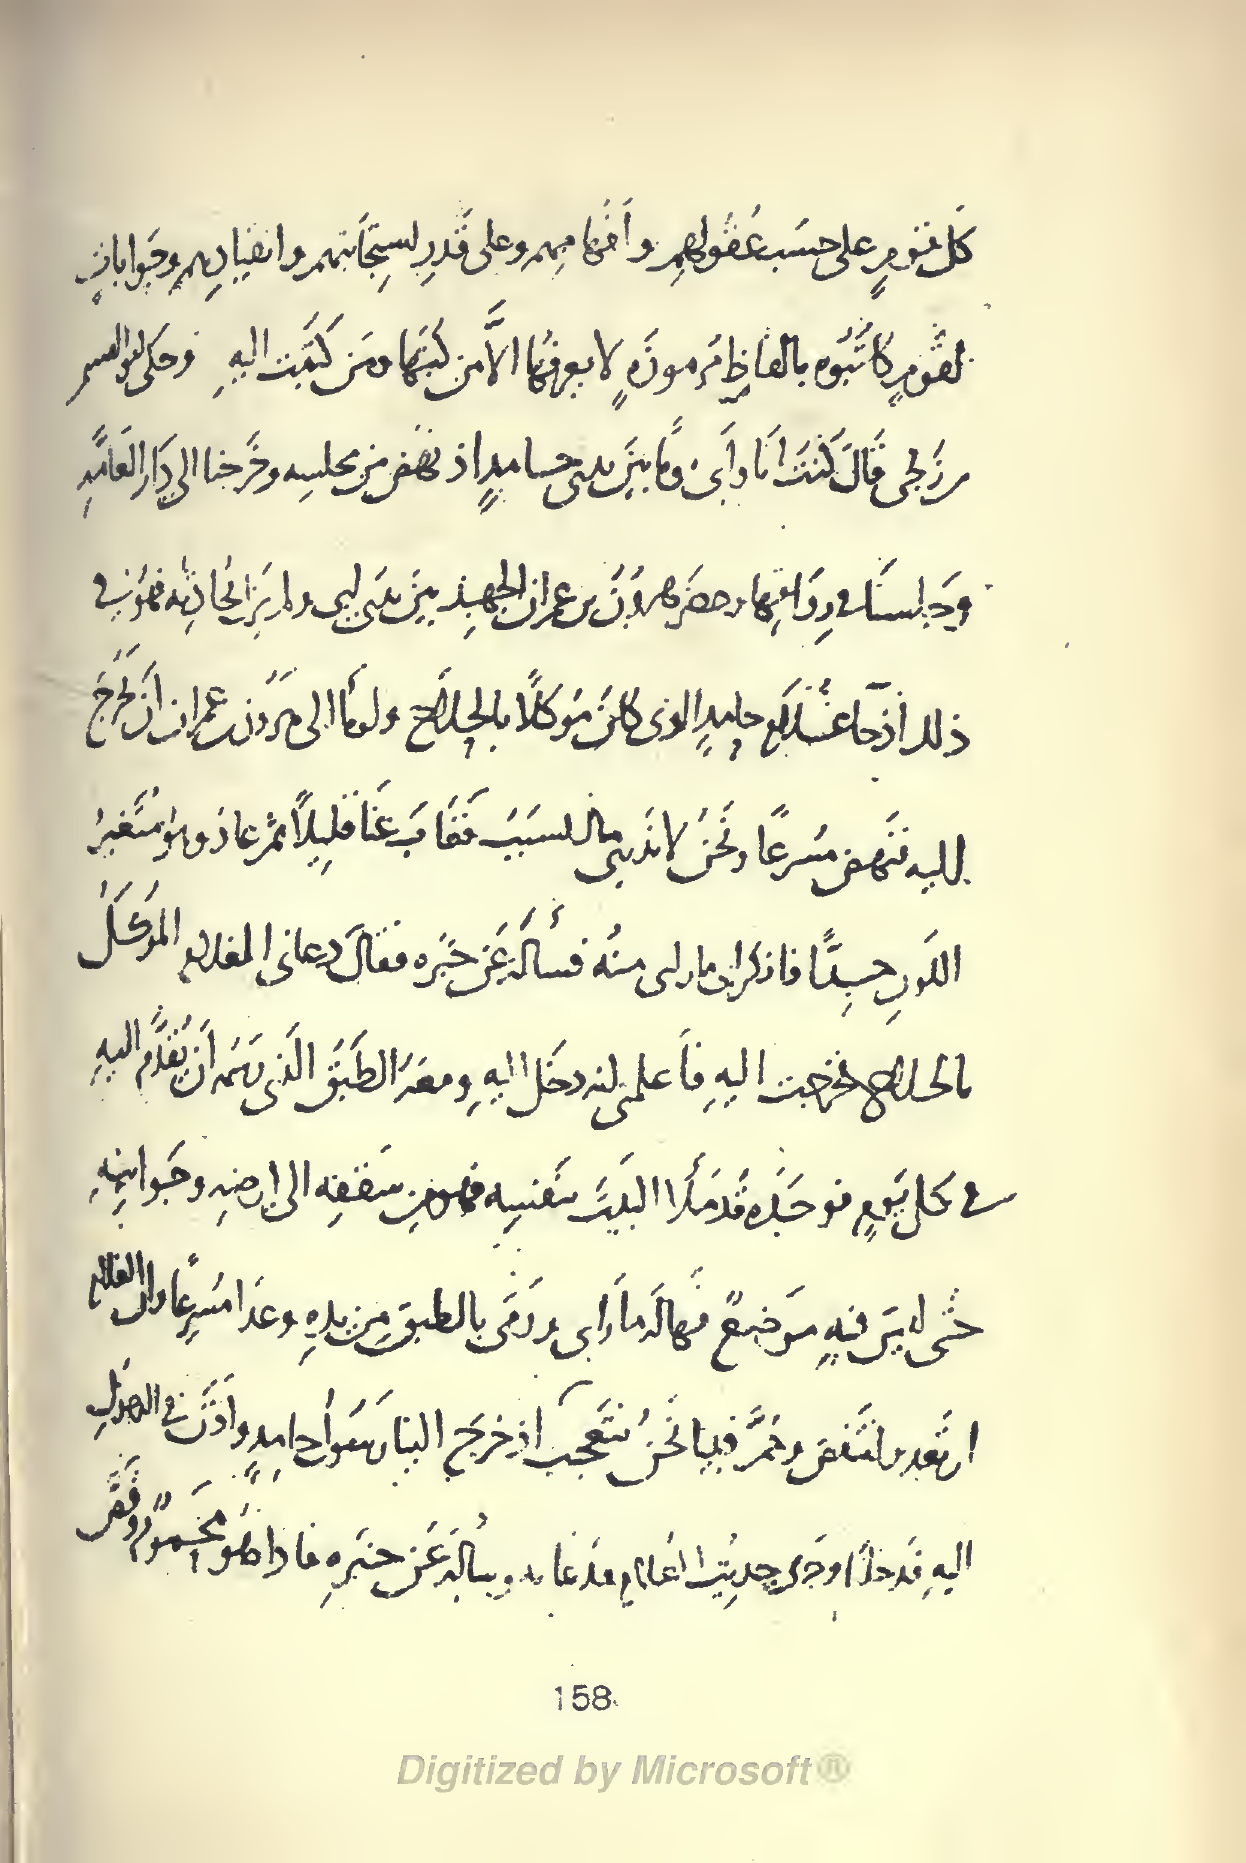 كل قوم على حسب عقولهم وأفهامهم وعلى قدر استجابتهم وانقيادهم وجوابات
لقوم كاتبوه بالفاظ مرموزه لا يعرفها الا من كتبها ومن كتبت اليه وحكى ابو القسم
زنجى قال كنت انا وأبى يوما بين يدى حامد اذ نهض من مجلسه وخرجنا الى دار العامه
وجلسنا فى رواقها وحضر هرون بن عمران الجهبذ بين يدى ابى ولم يزل يحادثه فهو فى
ذلك اذ جا غلام حامد الذى كان موكلا بالحلاج واومأ الى هرون بن عمران ان يخرج
اليه فنهض مسرعا ونحن لا ندرى ما السبب فغاب عنا قليلا ثم عاد وهو متغير
اللون جدا فانكر ابى ما راى منه فسأله عن خبره فقال دعانى الغلام الموكل
بالحلاج فخرجت اليه فأعلمنى انه دخل اليه ومعه الطبق الذى رسمه ان يقدم اليه
فى كل يوم فوجده قد ملأ البيت بنفسه فهو من سقفه الى ارضه وجوانبه
حتى ليس فيه موضع فهاله ما رأى ورمى بالطبق من يده وعدا مسرعا وان الغلام
ارتعد وانتفض وحم فبينا نحن نتعجب اذ خرج الينا رسول حامد وأذن فى الدخول
اليه فدخلنا وجرى حديث الغلام فدعا به وسأله عن خبره فاذا هو محموم وقص
158
Digitized by Microsoft®